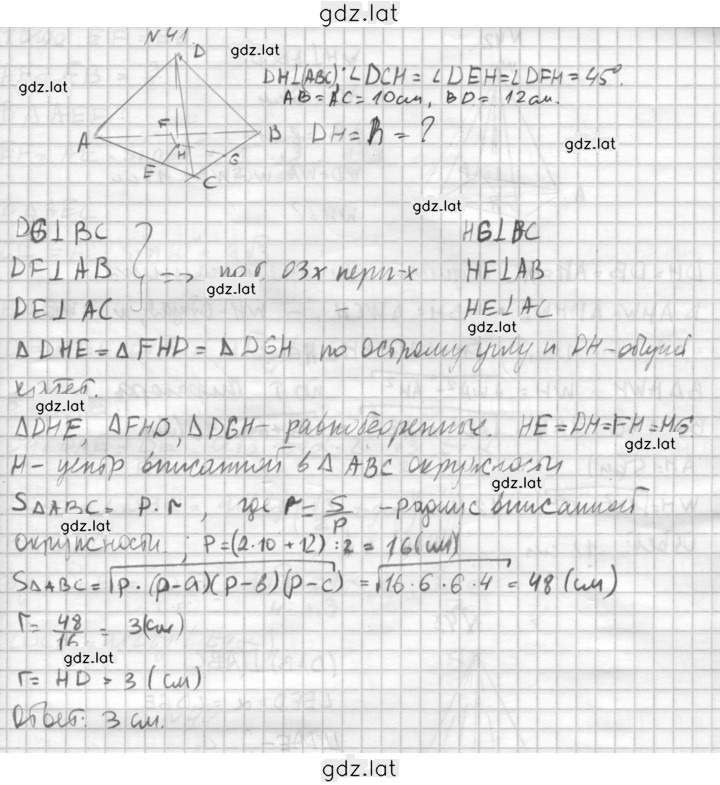 gdz.lat
N 41.
D
gdz.lat
gdz.lat
DH⊥(ABC); ∠DCH = ∠DEH = ∠DFH = 45°.
AB = AC = 10 см, BD = 12 см.
A
F
B
DH = h = ?
H
G
E
C
gdz.lat
gdz.lat
DG⊥BC
HG⊥BC
DF⊥AB
=> по т. О 3х перп-х
HF⊥AB
gdz.lat
DE⊥AC
HE⊥AC
gdz.lat
ΔDHE = ΔFHD = ΔDGH по острому углу и DH - общий
катет.
gdz.lat
ΔDHE, ΔFHD, ΔDGH - равнобедренные. HE = DH = FH = HG.
gdz.lat
H - центр вписанной в ΔABC окружности
gdz.lat
SΔABC = p·r, где r = S/p - радиус вписанной
gdz.lat
окружности ; P = (2·10 + 12) : 2 = 16 (см)
SΔABC = √p·(p-a)(p-b)(p-c) = √16·6·6·4 = 48 (см)
r = 48/16 = 3 (см)
gdz.lat
r = HD = 3 (см)
Ответ: 3 см.
gdz.lat